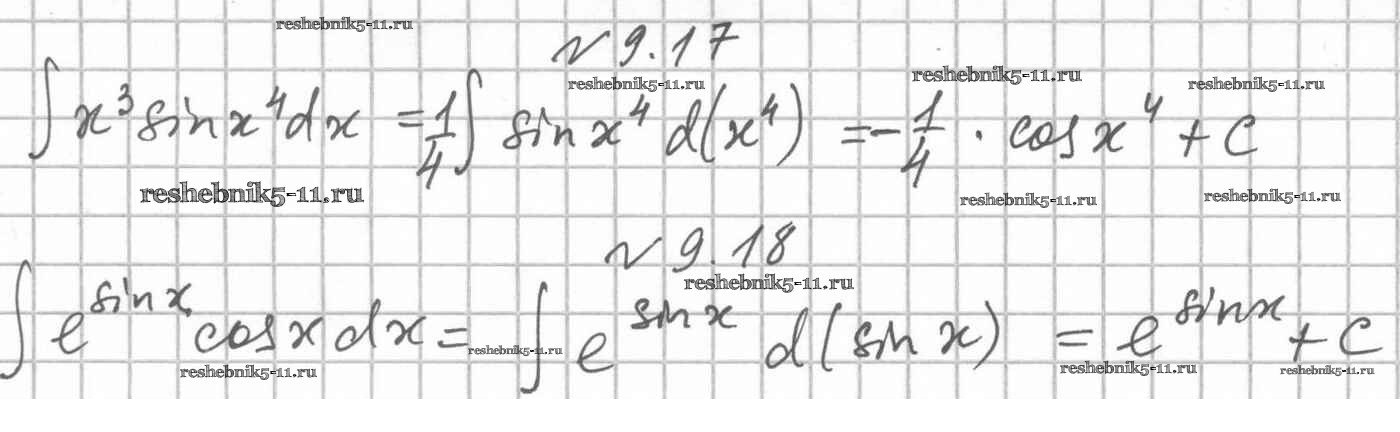 reshebnik5-11.ru
№ 9.17
reshebnik5-11.ru reshebnik5-11.ru reshebnik5-11.ru
∫ x³ sin x⁴ dx = 1/4 ∫ sin x⁴ d(x⁴) = - 1/4 · cos x⁴ + C
reshebnik5-11.ru reshebnik5-11.ru reshebnik5-11.ru
№ 9.18
reshebnik5-11.ru
∫ e^(sin x) cos x dx = ∫ e^(sin x) d(sin x) = e^(sin x) + C
reshebnik5-11.ru reshebnik5-11.ru reshebnik5-11.ru reshebnik5-11.ru